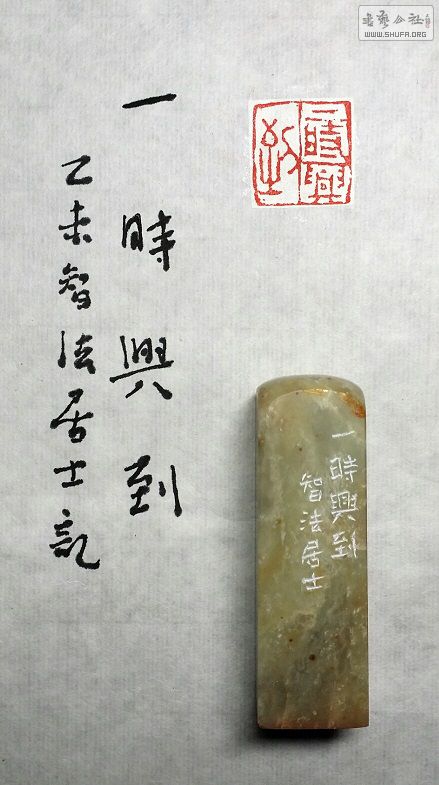 一時興到
乙未智法居士記
一時興到
一時興到
智法居士
書艺公社
WWW.SHUFA.ORG